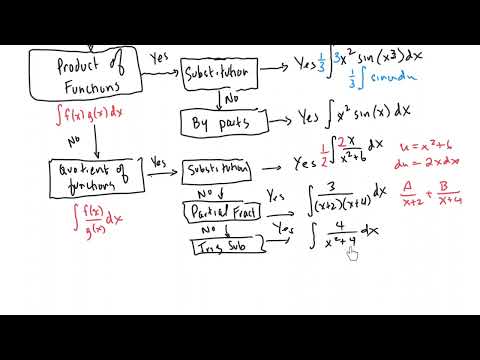 Product of Functions
Yes
Substitution
Yes 1/3 ∫ 3x² sin(x3) dx
1/3 ∫ sinu du
∫ f(x) g(x) dx
No
By parts
Yes ∫ x² sin(x) dx
No
Quotient of functions
Yes
Substitution
Yes 1/2 ∫ 2x/(x²+6) dx
u = x²+6
du = 2xdx
∫ f(x)/g(x) dx
No
Partial Fract
Yes
∫ 3/((x+2)(x+4)) dx
A/(x+2) + B/(x+4)
No
Trig Sub
Yes
∫ 4/(x²+4) dx